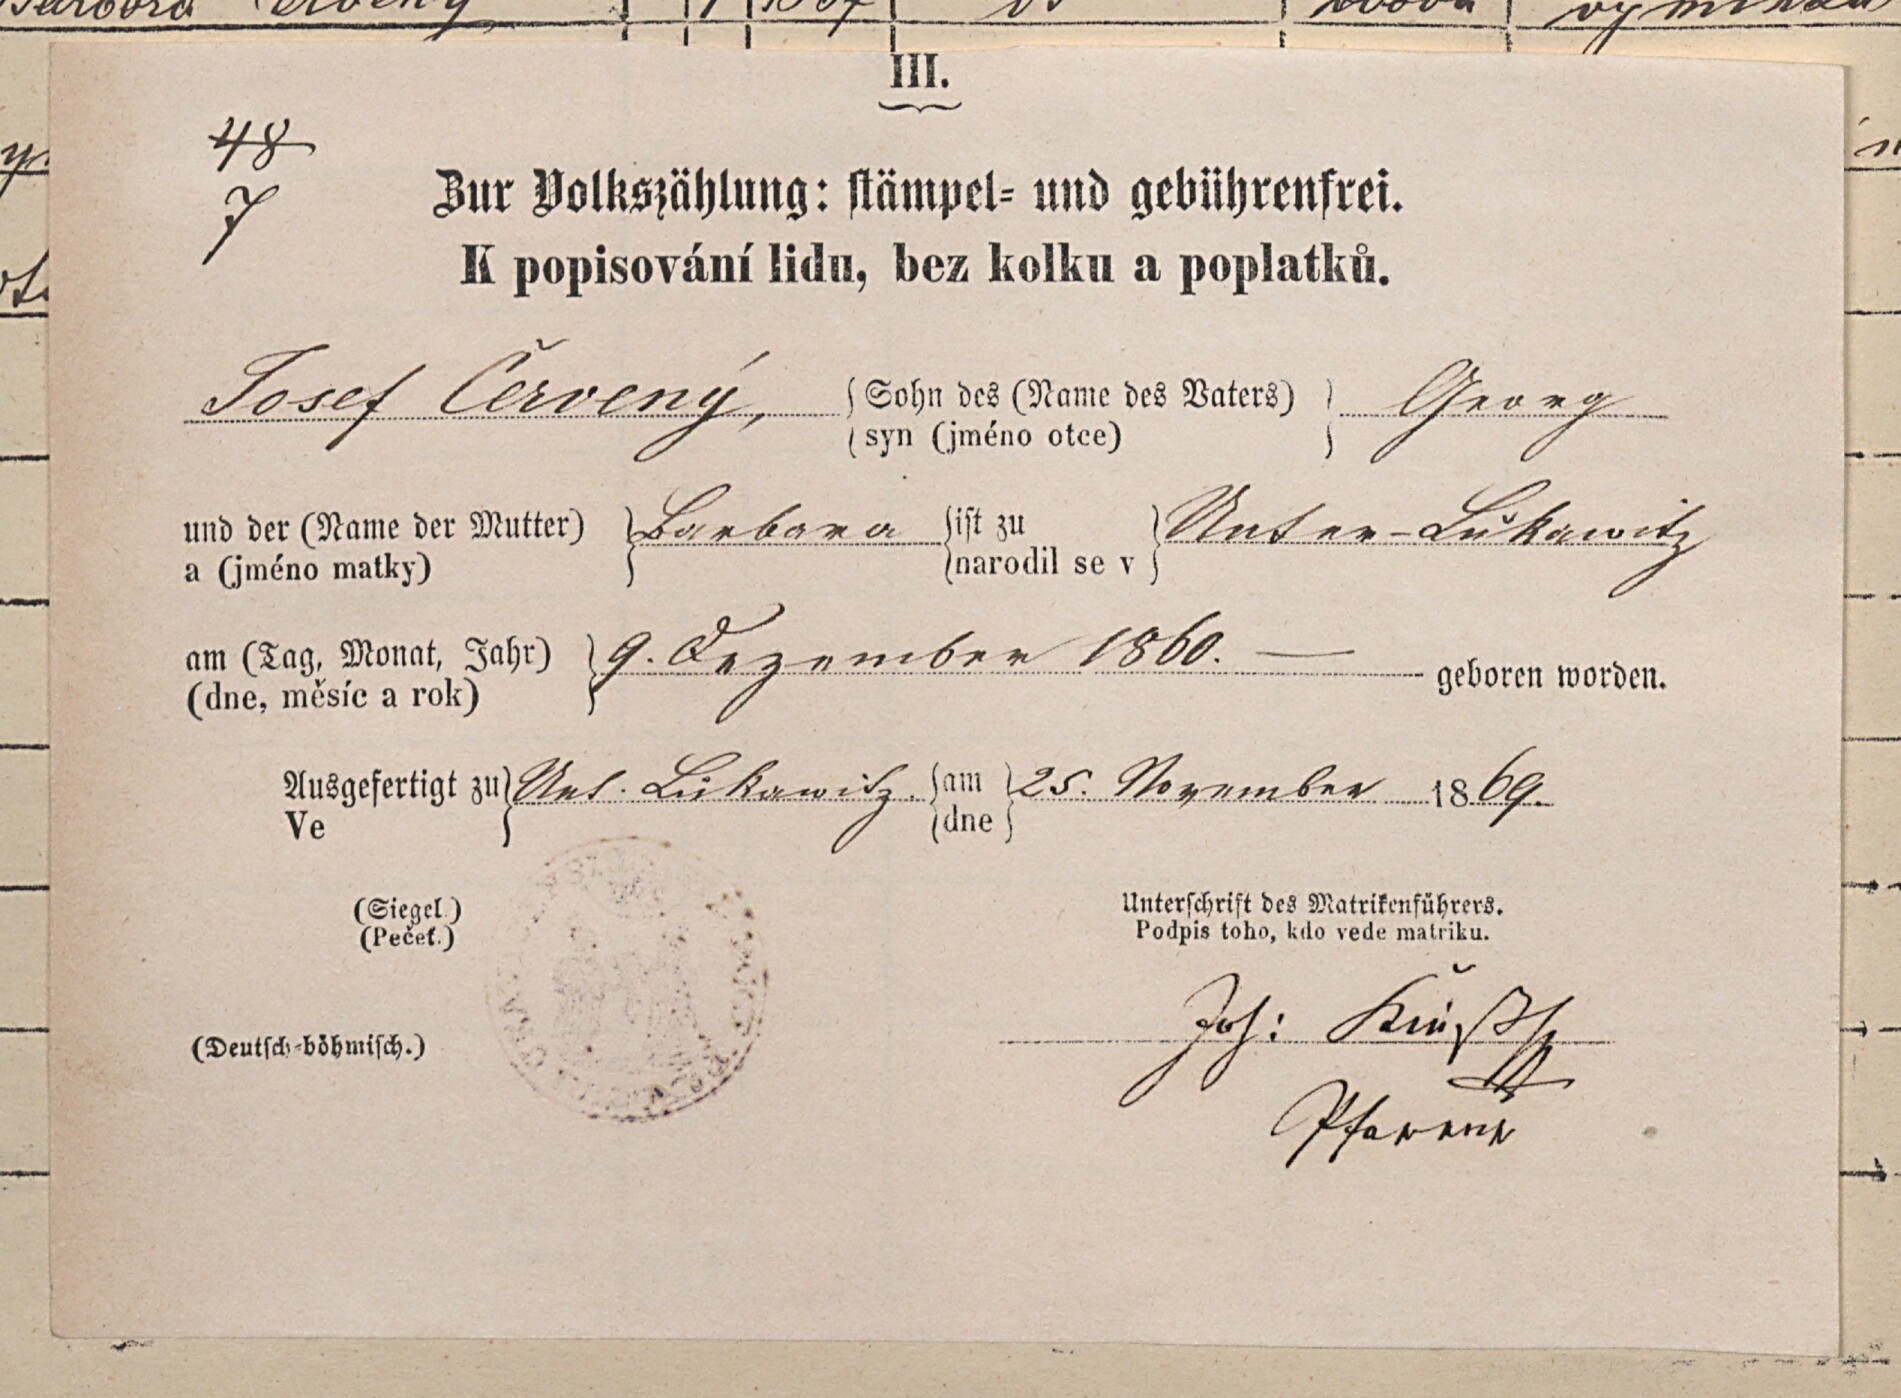 Červený
III.
48
7
Zur Volkszählung: stämpel- und gebührenfrei.
K popisování lidu, bez kolku a poplatků.
Josef Červený, Sohn des (Name des Vaters) Georg
syn (jméno otce)
und der (Name der Mutter) Barbara ist zu Unter-Lukawitz
a (jméno matky) narodil se v
am (Tag, Monat, Jahr) 9. Dezember 1860. — geboren worden.
(dne, měsíc a rok)
Ausgefertigt zu Unt. Lukawitz. am 25. November 1869.
Ve dne
(Siegel.)
(Pečeť.)
Unterschrift des Matrikenführers.
Podpis toho, kdo vede matriku.
(Deutsch-böhmisch.)
Joh:
Pfarrer